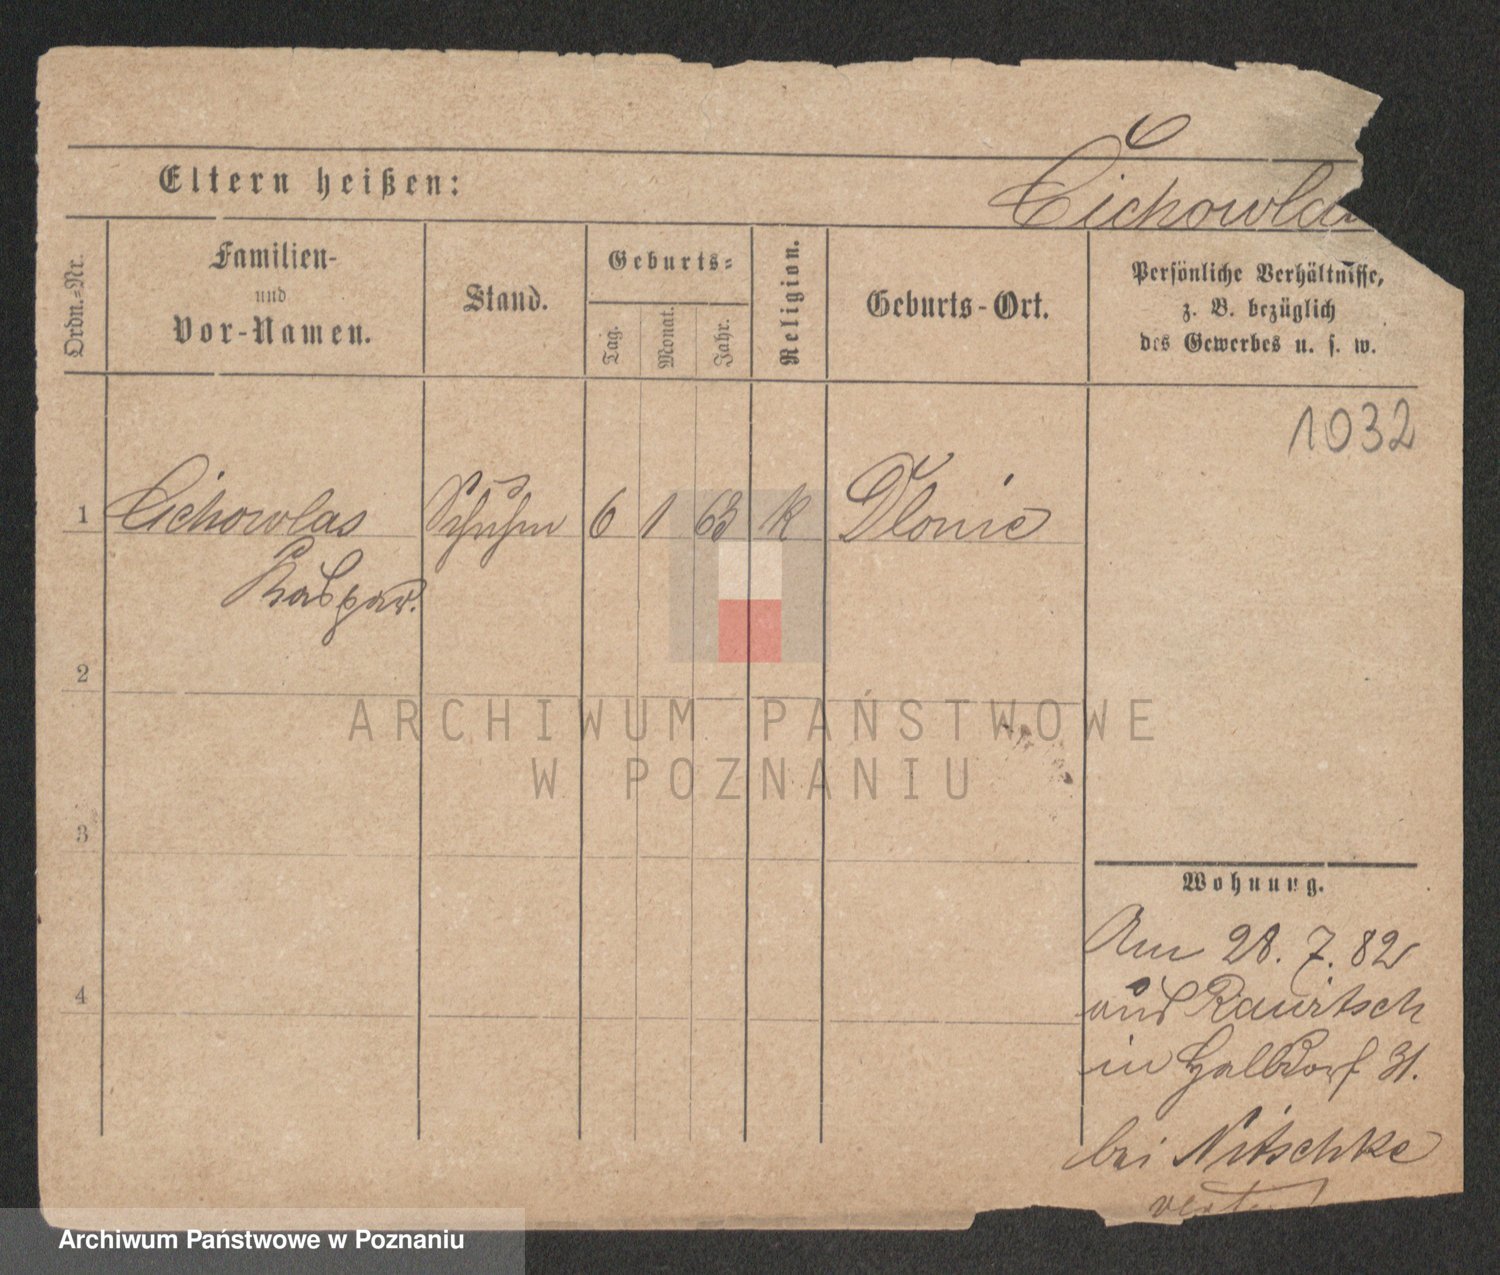 C
Eltern heißen:
Cichowlas
Ordn.-Nr.
Familien-
und
Vor-Namen.
Stand.
Geburts-
Tag.
Monat.
Jahr.
Religion.
Geburts-Ort.
Persönliche Verhältnisse,
z. B. bezüglich
des Gewerbes u. s. w.
1032
1 Cichowlas Schuhm 6 1 63 K Dlonie
Kaspar.
2
ARCHIWUM PAŃSTWOWE
W POZNANIU
3
Wohnung.
Am 28. 7. 82
aus Rawitsch
in Halbdorf 31.
4
bei Nitschke
Archiwum Państwowe w Poznaniu